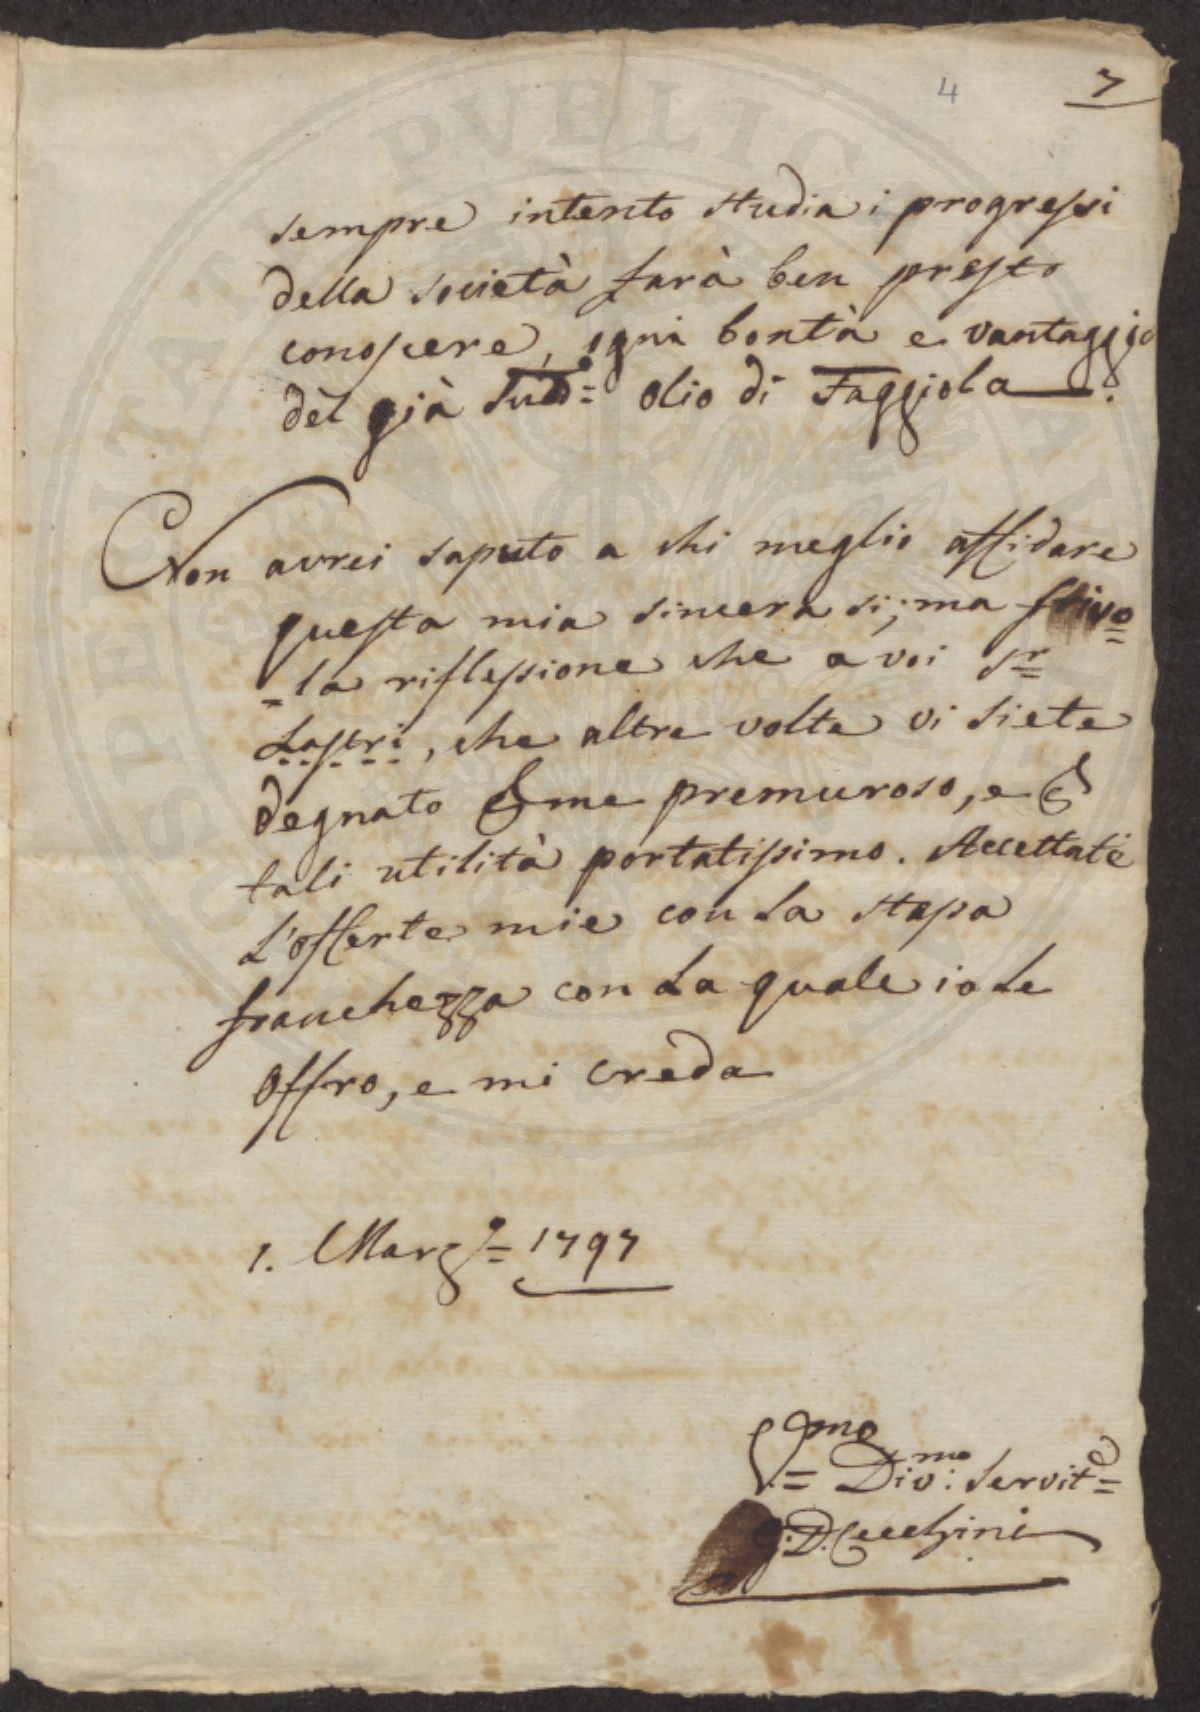 4 7
sempre intento studia i progressi
della società farà ben presto
conoscere, ogni bontà e vantaggio
dèl già Sud.º= olio di Faggiola.
Non avrei saputo a chi meglio affidare
questa mia sincera si; ma frivo=
=la riflessione che a voi Sr=
Lastri, che altre volte vi siete
degnato per me premuroso, e per
tali utilità portatissimo. Accettate
L'offerte mie con La stessa
franchezza con La quale io Le
Offro, e mi creda
1. Marzo= 1797
Div:mo Servite=
G. D. Cecchini